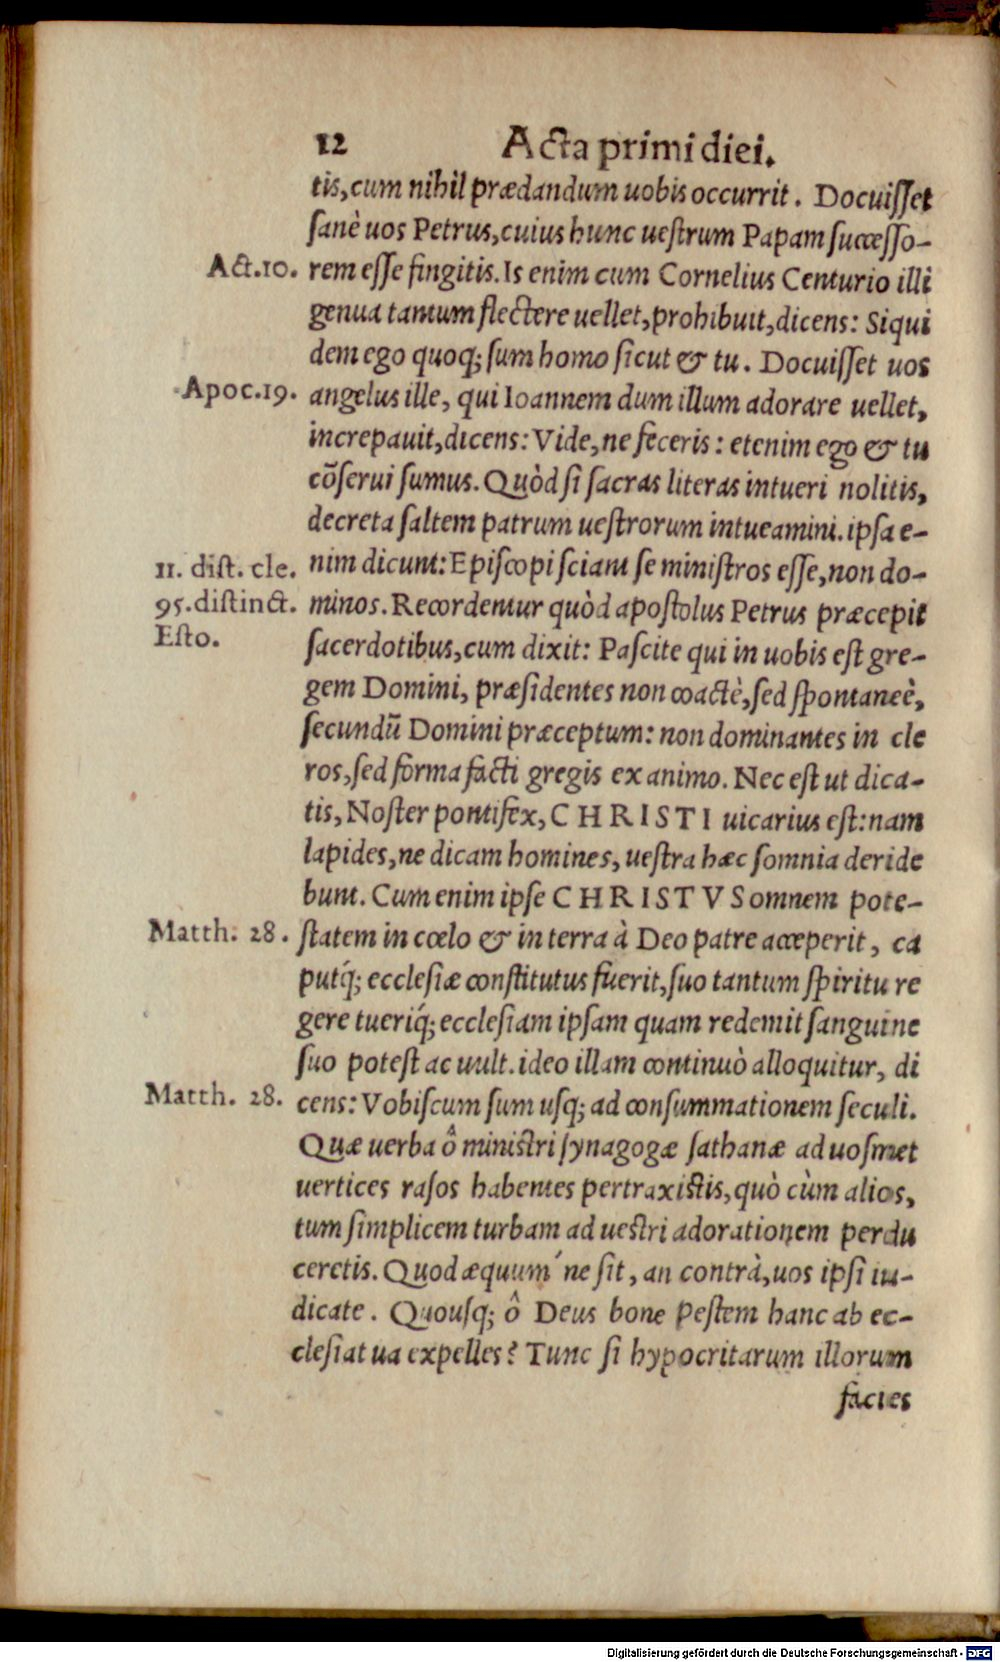 12 Acta primi diei.
tis, cum nihil prædandum uobis occurrit. Docuisset
sanè uos Petrus, cuius hunc uestrum Papam successo-
Act.10. rem esse fingitis. Is enim cum Cornelius Centurio illi
genua tantum flectere uellet, prohibuit, dicens: Siqui
dem ego quoq; sum homo sicut & tu. Docuisset uos
Apoc.19. angelus ille, qui Ioannem dum illum adorare uellet,
increpauit, dicens: Vide, ne feceris: etenim ego & tu
cõserui sumus. Quòd si sacras literas intueri nolitis,
decreta saltem patrum uestrorum intueamini. ipsa e-
11. dist. cle. nim dicunt: Episcopi sciant se ministros esse, non do-
95.distinct. minos. Recordentur quòd apostolus Petrus præcepit
Esto. sacerdotibus, cum dixit: Pascite qui in uobis est gre-
gem Domini, præsidentes non coactè, sed spontaneè,
secundũ Domini præceptum: non dominantes in cle
ros, sed forma facti gregis ex animo. Nec est ut dica-
tis, Noster pontifex, CHRISTI uicarius est: nam
lapides, ne dicam homines, uestra hæc somnia deride
bunt. Cum enim ipse CHRISTVS omnem pote-
Matth. 28. statem in cœlo & in terra à Deo patre acceperit, ca
putq́; ecclesiæ constitutus fuerit, suo tantum spiritu re
gere tueriq́; ecclesiam ipsam quam redemit sanguine
suo potest ac uult. ideo illam continuò alloquitur, di
Matth. 28. cens: Vobiscum sum usq; ad consummationem seculi.
Quæ uerba ô ministri synagogæ sathanæ ad uosmet
uertices rasos habentes pertraxistis, quò cùm alios,
tum simplicem turbam ad uestri adorationem perdu
ceretis. Quod æquum ́ ne sit, an contrà, uos ipsi iu-
dicate. Quousq; ô Deus bone pestem hanc ab ec-
clesia tua expelles? Tunc si hypocritarum illorum
facies
Digitalisierung gefördert durch die Deutsche Forschungsgemeinschaft - DFG